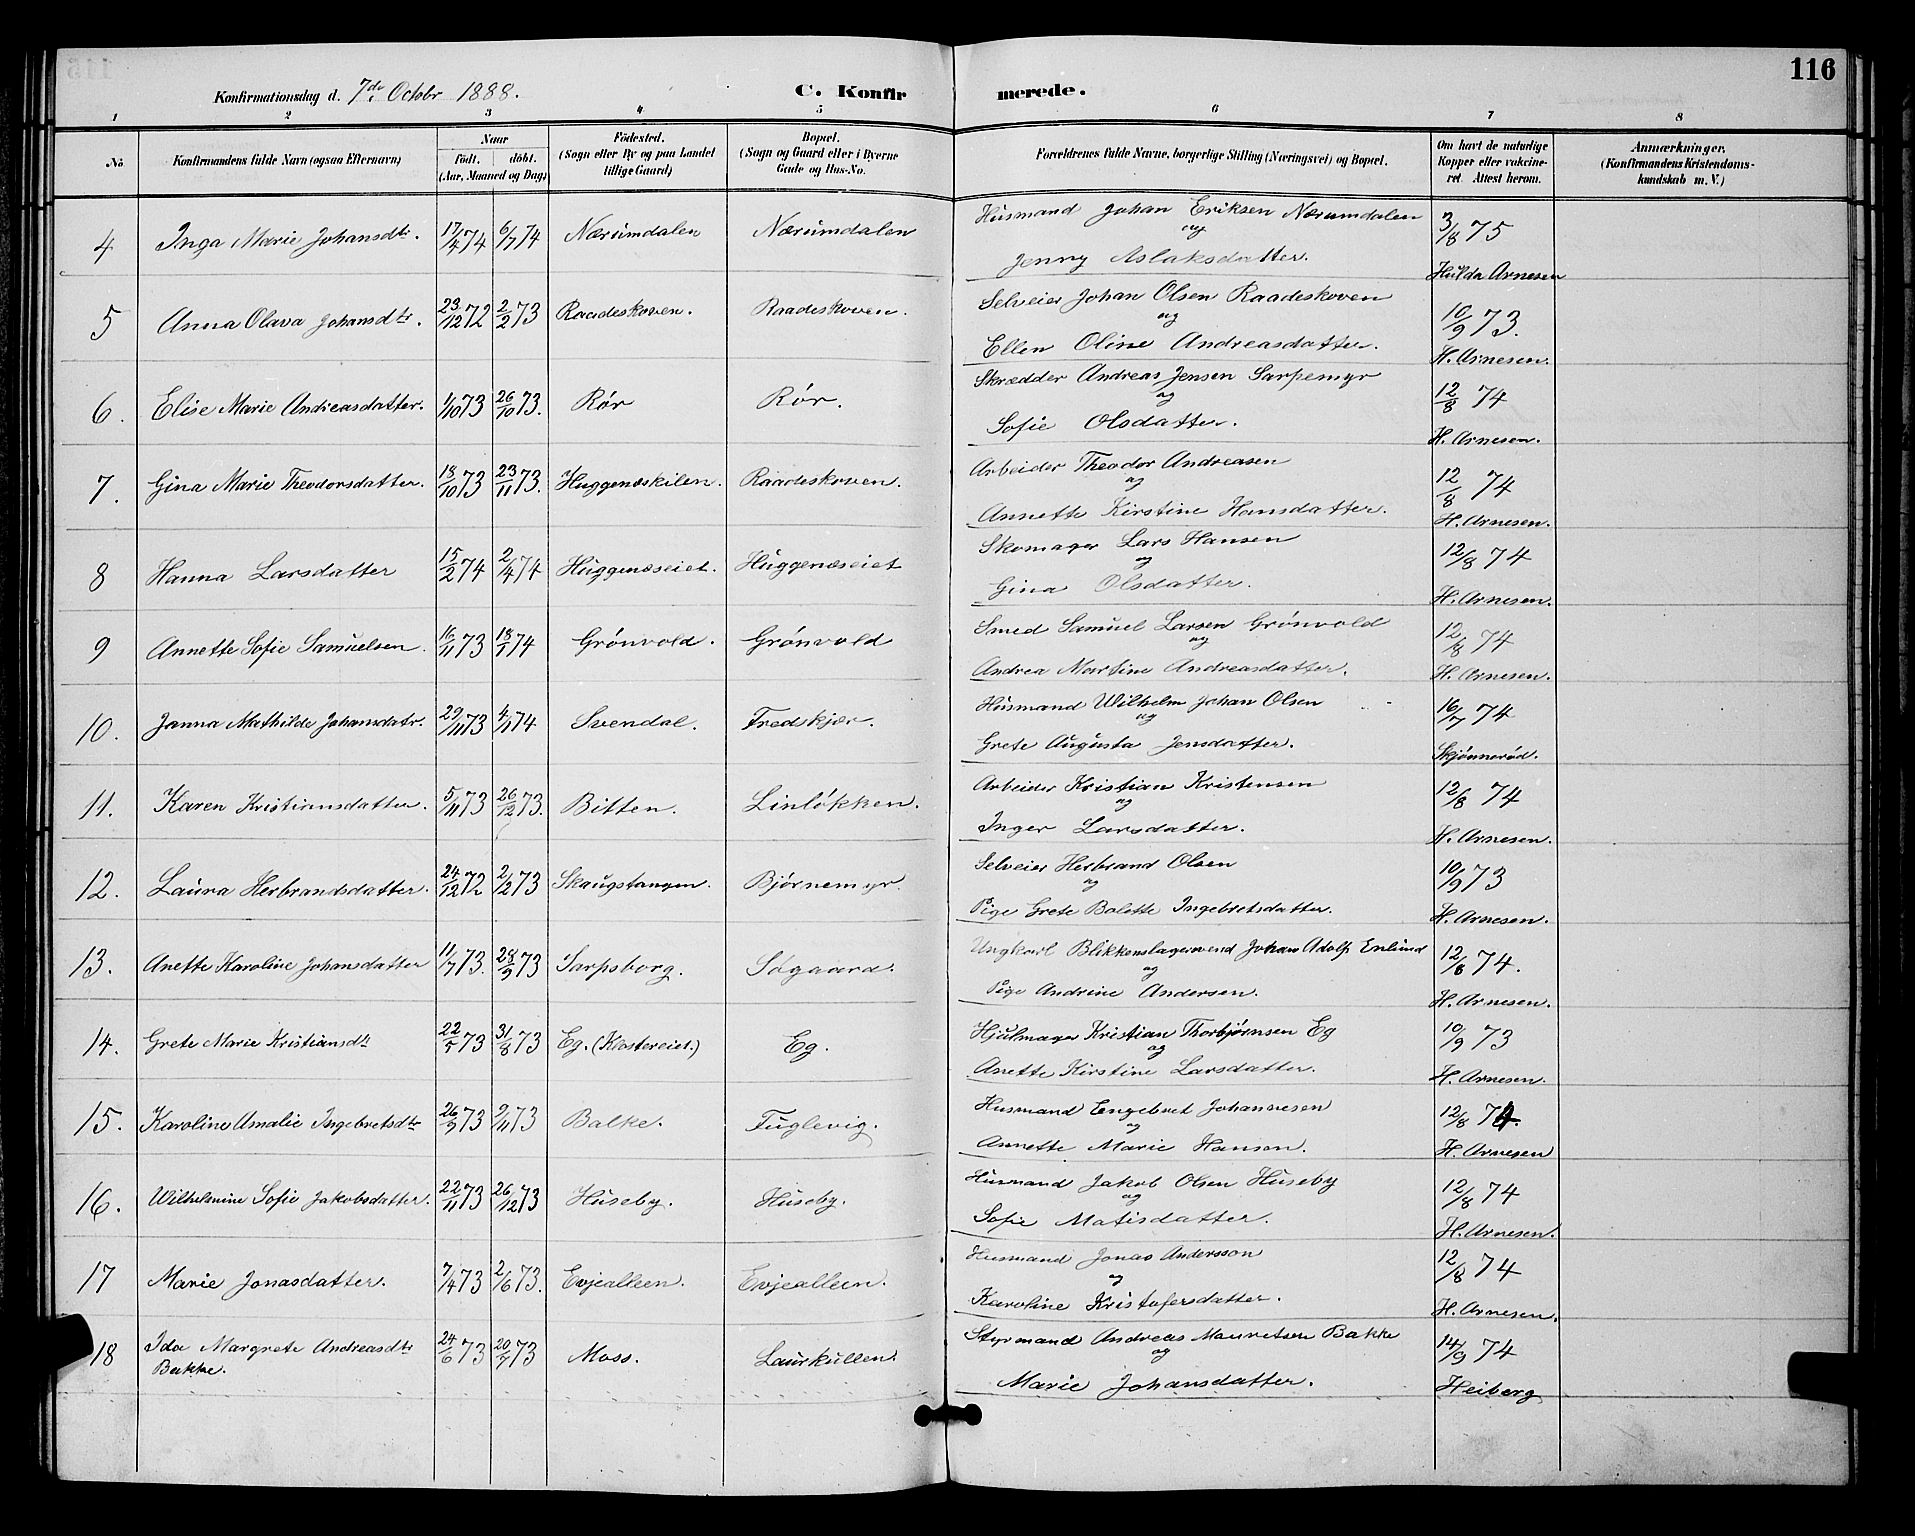 116
Konfirmationsdag d. 7de Octobr 1888. C. Konfirmerede.
1 2 3 4 5 6 7 8
No Konfirmandens fulde Navn (ogsaa Efternavn) Naar födt. döbt. (Aar, Maaned og Dag) Födested. (Sogn eller By og paa Landet tillige Gaard) Bopæl. (Sogn og Gaard eller i Byerne Gade og Hus-No. Forældrenes fulde Navne, borgerlige Stilling (Næringsvei) og Bopæl. Om havt de naturlige Kopper eller vakcineret. Attest herom. Anmærkninger. (Konfirmandens Kristendomskundskab m. V.)
4 Inga Marie Johansdtr. 17/4 74 6/7 74 Nærumdalen Nærumdalen Husmand Johan Eriksen Nærumdalen 3/8 75
og
Jenny Aslaksdatter. Hulda Arnesen
5 Anna Olava Johansdtr. 23/12 72 2/2 73 Raadeskoven. Raadeskoven. Selveier Johan Olsen Raadeskoven 10/9 73.
og
Ellen Oline Andreasdatter. H. Arnesen.
6. Elise Marie Andreasdatter. 1/10 73 26/10 73. Rör Rör. Skrædder Andreas Jensen Sarpemyr 12/8 74
og
Sofie Olsdatter. H. Arnesen.
7. Gina Marie Theodorsdatter. 18/10 73 23/11 73. Huggenæskilen. Raadeskoven. Arbeider Theodor Andreasen 12/8 74
og
Annette Kirstine Hansdatter. H. Arnesen.
8 Hanna Larsdatter 15/2 74 2/4 74 Huggenæseiet. Huggenæseiet Skomager Lars Hansen 12/8 74
og
Gina Olsdatter. H. Arnesen.
9 Annette Sofie Samuelsen. 16/11 73 18/1 74 Grönvold. Grönvold Smed Samuel Larsen Grönvold 12/8 74
og
Andrea Martine Andreasdatter. H. Arnesen.
10. Janna Mathilde Johansdatr. 29/11 73 4/1 74 Svendal. Fredskjær. Husmand Wilhelm Johan Olsen 16/7 74
og
Grete Augusta Jensdatter. Skjönneröd.
11. Karen Kristiansdatter. 5/11 73 26/12 73. Bitten. Linlökken. Arbeider Kristian Kristensen 12/8 74
og
Inger Larsdatter. H. Arnesen.
12. Laura Herbrandsdatter. 24/12 72 2/2 73 Skaugstangen. Bjørnemyr. Selveier Herbrand Olsen 10/9 73
og
Pige Grete Bolette Ingebretsdatter. H. Arnesen.
13. Anette Karoline Johansdatter 11/7 73. 28/9 73 Sarpsborg. Søgaard. Ungkarl Blikkenslagersvend Johan Adolf Enlund 12/8 74.
og
Pige Andrine Andersen. H. Arnesen.
14. Grete Marie Kristiansdtr 22/5 73 31/8 73 Eg. (Klostereiet.) Eg. Hjulmager Kristian Thorbjørnsen Eg 10/9 73
og
Anette Kirstine Larsdatter. H. Arnesen.
15. Karoline Amalie Ingebretsdtr 26/9 73 9/11 73 Balke. Fuglevig. Husmand Engebret Johannesen 12/8 74.
og
Annette Marie Hansen. H. Arnesen
16. Wilhelmine Sofie Jakobsdatter. 22/11 73 26/12 73 Huseby. Huseby. Husmand Jakob Olsen Huseby 12/8 74
og
Sofie Matisdatter. H. Arnesen.
17 Marie Jonasdatter. 7/4 73 2/6 73. Evjealleen. Evjealleen. Husmand Jonas Andersson 12/8 74
og
Karoline Kristofersdatter. H. Arnesen.
18 Ida Margrete Andreasdtr 24/6 73 20/7 73 Moss. Laurkullen. Styrmand Andreas Mauritsen Bakke 14/9 74
Bakke. og
Marie Johansdatter. Heiberg